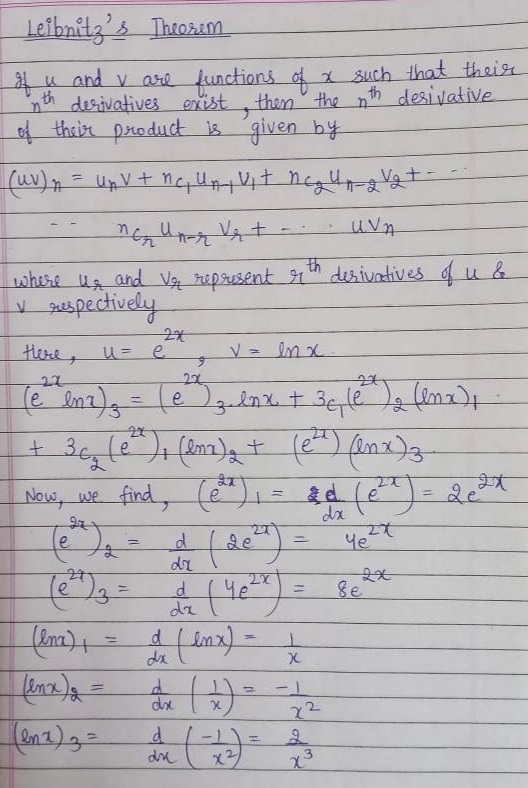 Leibnitz's Theorem
If u and v are functions of x such that their
nth derivatives exist, then the nth derivative
of their product is given by
(uv)ₙ = uₙv + nc₁uₙ₋₁v₁ + nc₂uₙ₋₂v₂ + - ··
-- ncᵣuₙ₋ᵣvᵣ + - · · · uvₙ
where uᵣ and vᵣ represent rth derivatives of u &
v respectively
Here, u = e²ˣ, v = lnx
(e²ˣ lnx)₃ = (e²ˣ)₃.lnx + 3c₁(e²ˣ)₂(lnx)₁
+ 3c₂(e²ˣ)₁(lnx)₂ + (e²ˣ)(lnx)₃.
Now, we find, (e²ˣ)₁ = d/dx (e²ˣ) = 2e²ˣ
(e²ˣ)₂ = d/dx (2e²ˣ) = 4e²ˣ
(e²ˣ)₃ = d/dx (4e²ˣ) = 8e²ˣ
(lnx)₁ = d/dx (lnx) = 1/x
(lnx)₂ = d/dx (1/x) = -1/x²
(lnx)₃ = d/dx (-1/x²) = 2/x³